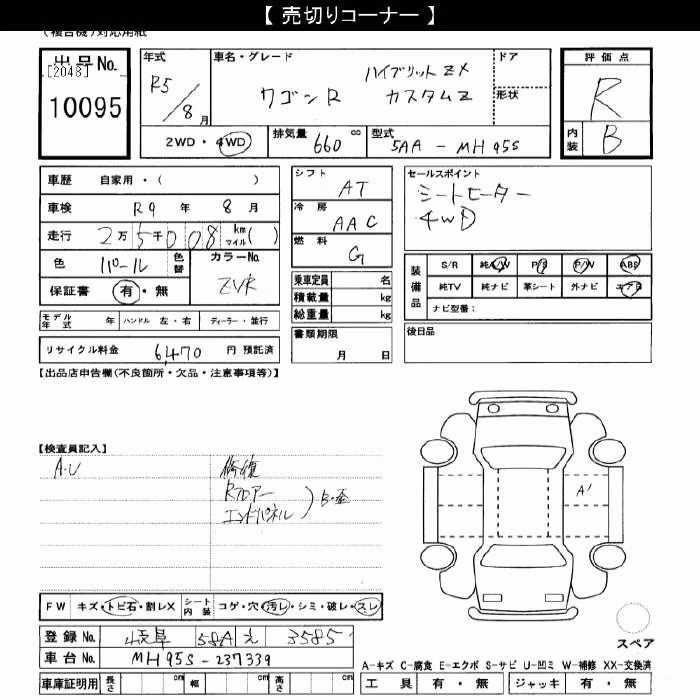 【 売切りコーナー 】
(複合機)対応用紙
出品No.
[2048]
10095
年式 R5/8月
車名・グレード ワゴンR ハイブリットZX カスタムZ
ドア
形状
評価点 R
内装 B
2WD・4WD 排気量 660 cc 型式 5AA-MH95S
車歴 自家用・( )
車検 R9 年 8 月
走行 2万5千008 km マイル( )
色 パール 色替 カラーNo. ZVR
保証書 有・無
シフト AT
冷房 AAC
燃料 G
乗車定員 名
積載量 kg
総重量 kg
書類期限 月 日
セールスポイント
シートヒーター
4WD
装備品 S/R 純A/W P/S P/W ABS
純TV 純ナビ 革シート 外ナビ エアB
ナビ型番:
後日品
モデル年式 年 ハンドル 左・右 ディーラー・並行
リサイクル料金 6,470 円 預託済
【出品店申告欄(不良箇所・欠品・注意事項等)】
【検査員記入】
A・U 修復
Rフロアー
エンドパネル ) B・歪
A1
FW キズ・トビ石・割レX シート内装 コゲ・穴・汚レ・シミ・破レ・スレ
登録No. 岐阜 58A え 3585
車台No. MH95S-237339
車庫証明用 長さ cm 幅 cm 高さ cm
スペア
A-キズ C-腐食 E-エクボ S-サビ U-凹ミ W-補修 XX-交換済
工具 有・無 ジャッキ 有・無